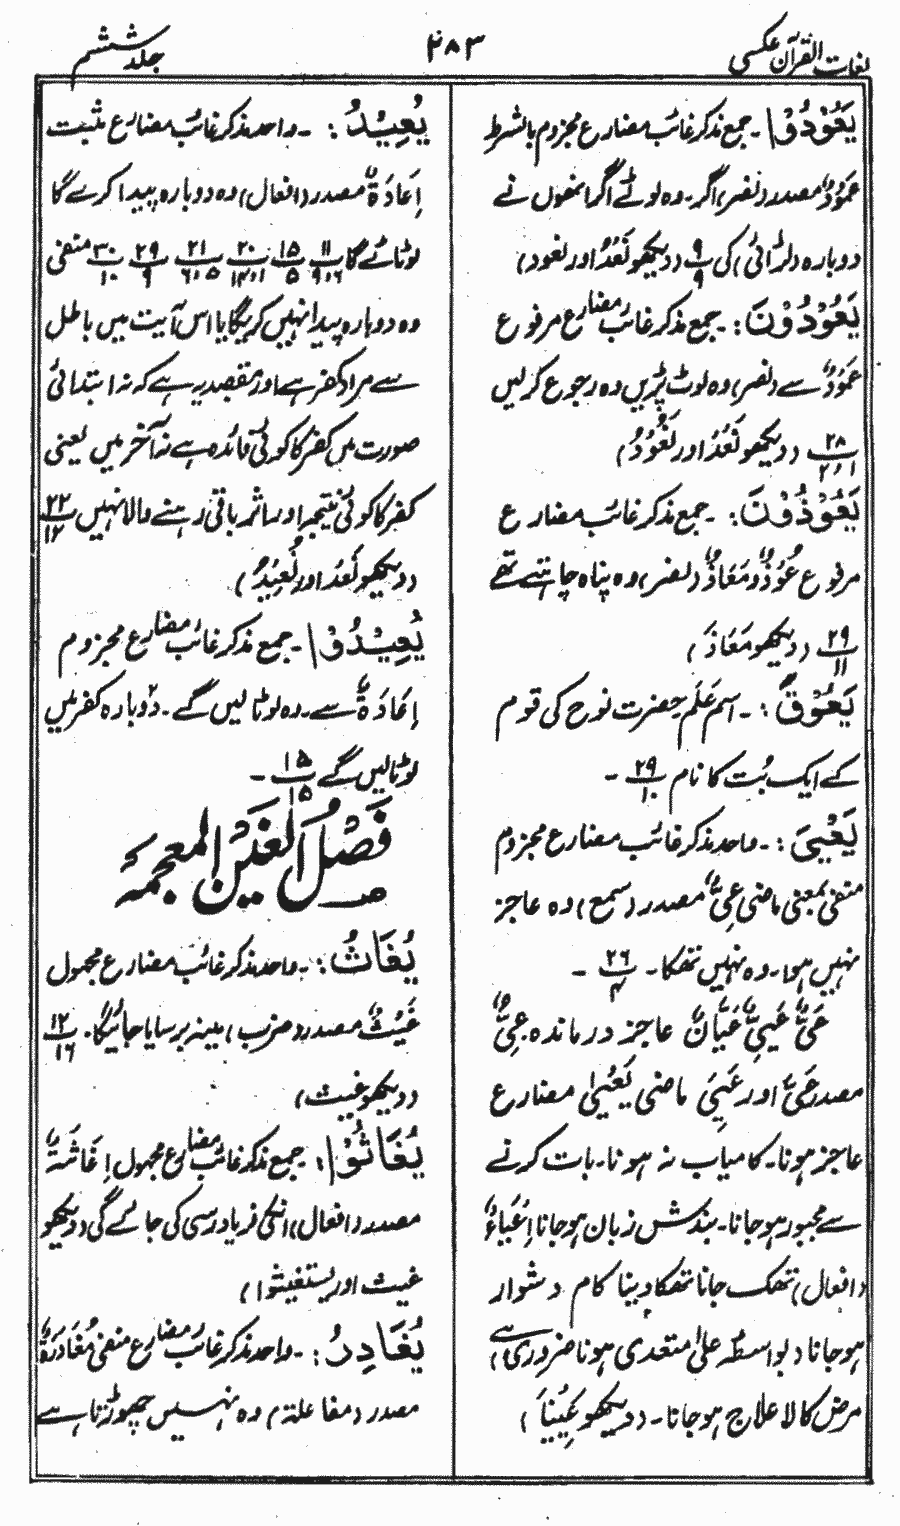 لغات القرآن عکسی
۲۸۳
جلد ششم
یَعُوْدُوْا۔ جمع مذکر غائب مضارع مجزوم بالشرط
عَوْدٌ مصدر (نصر) اگر۔ وہ لوٹے اگر انھوں نے
دوبارہ (لڑائی) کی ۹/۹ (دیکھو نَعُدْ اور نعود)
یَعُوْدُوْنَ :۔ جمع مذکر غائب مضارع مرفوع
عَوْدٌ سے (نصر) وہ لوٹ پڑیں وہ رجوع کرلیں
۲۸/۲،۱ (دیکھو نَعُدْ اور نَعُوْدُ)
یَعُوْذُوْنَ :۔ جمع مذکر غائب مضارع
مرفوع عَوْذٌ و مَعَاذٌ (نصر) وہ پناہ چاہتے تھے
۲۹/۱۱ (دیکھو مَعَاذَ)
یَعُوْقَ :۔ اسم عَلَم حضرت نوح کی قوم
کے ایک بُت کا نام ۲۹/۱۰ ۔
یَعْیَ :۔ واحد مذکر غائب مضارع مجزوم
منفی بمعنی ماضی عِیٌّ مصدر (سمع) وہ عاجز
نہیں ہوا۔ وہ نہیں تھکا۔ ۲۶/۴ ۔
عَیٌّ عَیِیٌّ عَیَّانٌ عاجز درماندہ۔ عِیٌّ
مصدر عَیَّ اور عَیِیَ ماضی یَعْییٰ مضارع
عاجز ہونا۔ کامیاب نہ ہونا۔ بات کرنے
سے مجبور ہوجانا۔ بندش زبان ہوجانا اِعْیَاءٌ
(افعال) تھک جانا تھکا دینا کام دشوار
ہوجانا (بواسطہ علیٰ متعدی ہونا ضروری ہے)
مرض کا لا علاج ہوجانا۔ (دیکھو عَیِیْنَا)
یُعِیْدُ :۔ واحد مذکر غائب مضارع مثبت
اِعَادَۃٌ مصدر (افعال) وہ دوبارہ پیدا کرے گا
لوٹائے گا ۱۱/۹،۶ ۱۵/۵ ۲۰/۱۲،۱ ۲۱/۶،۵ ۲۹/۹ ۳۰/۱۰ منفی
وہ دوبارہ پیدا نہیں کریگا یا اس آیت میں باطل
سے مراد کفر ہے اور مقصد یہ ہے کہ نہ ابتدائی
صورت میں کفر کا کوئی فائدہ ہے نہ آخر میں یعنی
کفر کا کوئی نتیجہ اور ثمر باقی رہنے والا نہیں ۲۲/۱۲
(دیکھو نَعُدْ اور نُعِیْدُ)
یُعِیْدُوْا۔ جمع مذکر غائب مضارع مجزوم
اِعَادَۃٌ سے۔ وہ لوٹا لیں گے۔ دوبارہ کفر میں
لوٹا لیں گے ۱۵/۱۵ ۔
فَصْلُ الْغَیْنِ الْمُعْجَمَۃ
یُغَاثُ :۔ واحد مذکر غائب مضارع مجہول
غَیْثٌ مصدر (ضرب) مینہ برسایا جائیگا۔ ۱۲/۱۶
(دیکھو غیث)
یُغَاثُوْا :۔ جمع مذکر غائب مضارع مجہول اِغَاثَۃٌ
مصدر (افعال) انکی فریاد رسی کی جائے گی (دیکھو
غیث اور یستغیثوا)
یُغَادِرُ :۔ واحد مذکر غائب مضارع منفی مُغَادَرَۃٌ
مصدر (مفاعلۃ) وہ نہیں چھوڑتا ہے